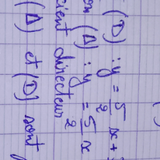 (D) : y = 5/2 x +
(Δ) : y = 5/2 x
cient directeur
(Δ) et (D) sont